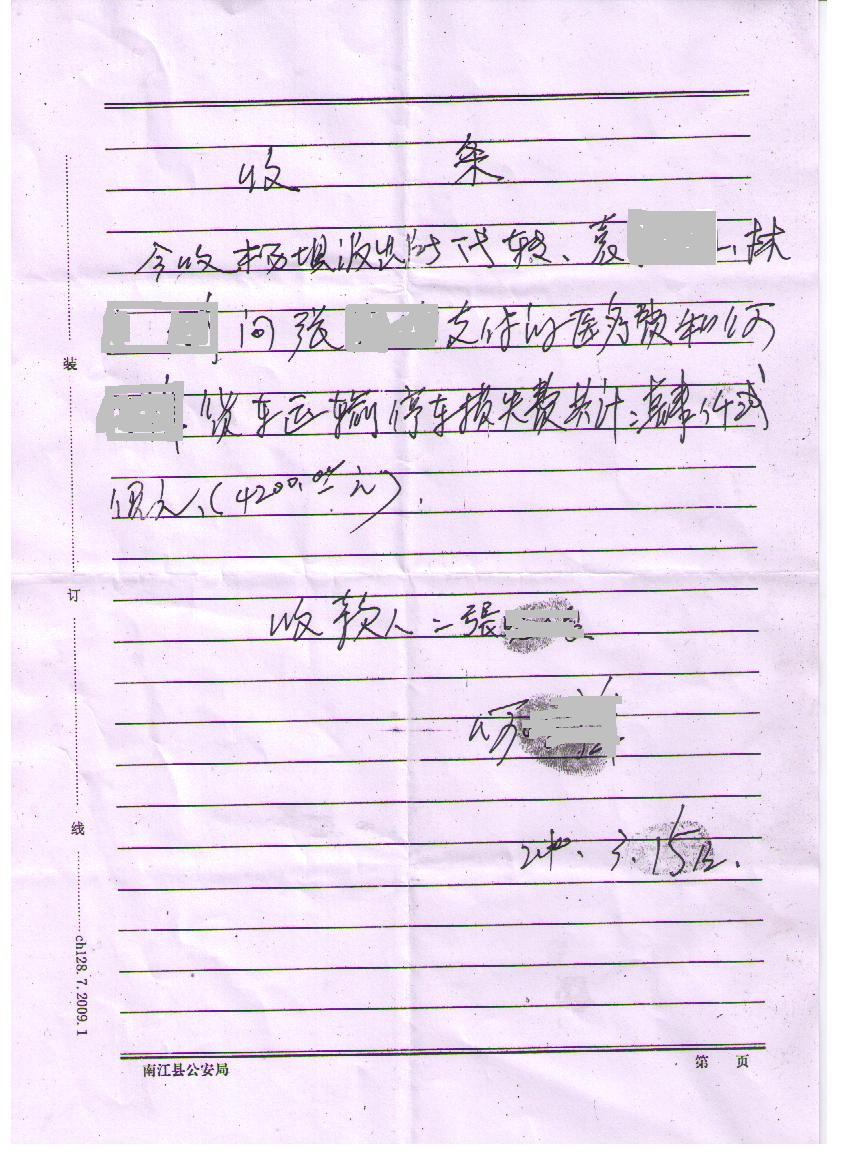 收 条
今收杨坝派出所代转、袁 、林
向张 支付的医疗费和何
货车运输停车损失费共计:肆仟贰
佰元、(4200.00元).
收款人:张
何
3.15日.
装
订
线
ch128.7.2009.1
南江县公安局
第 页